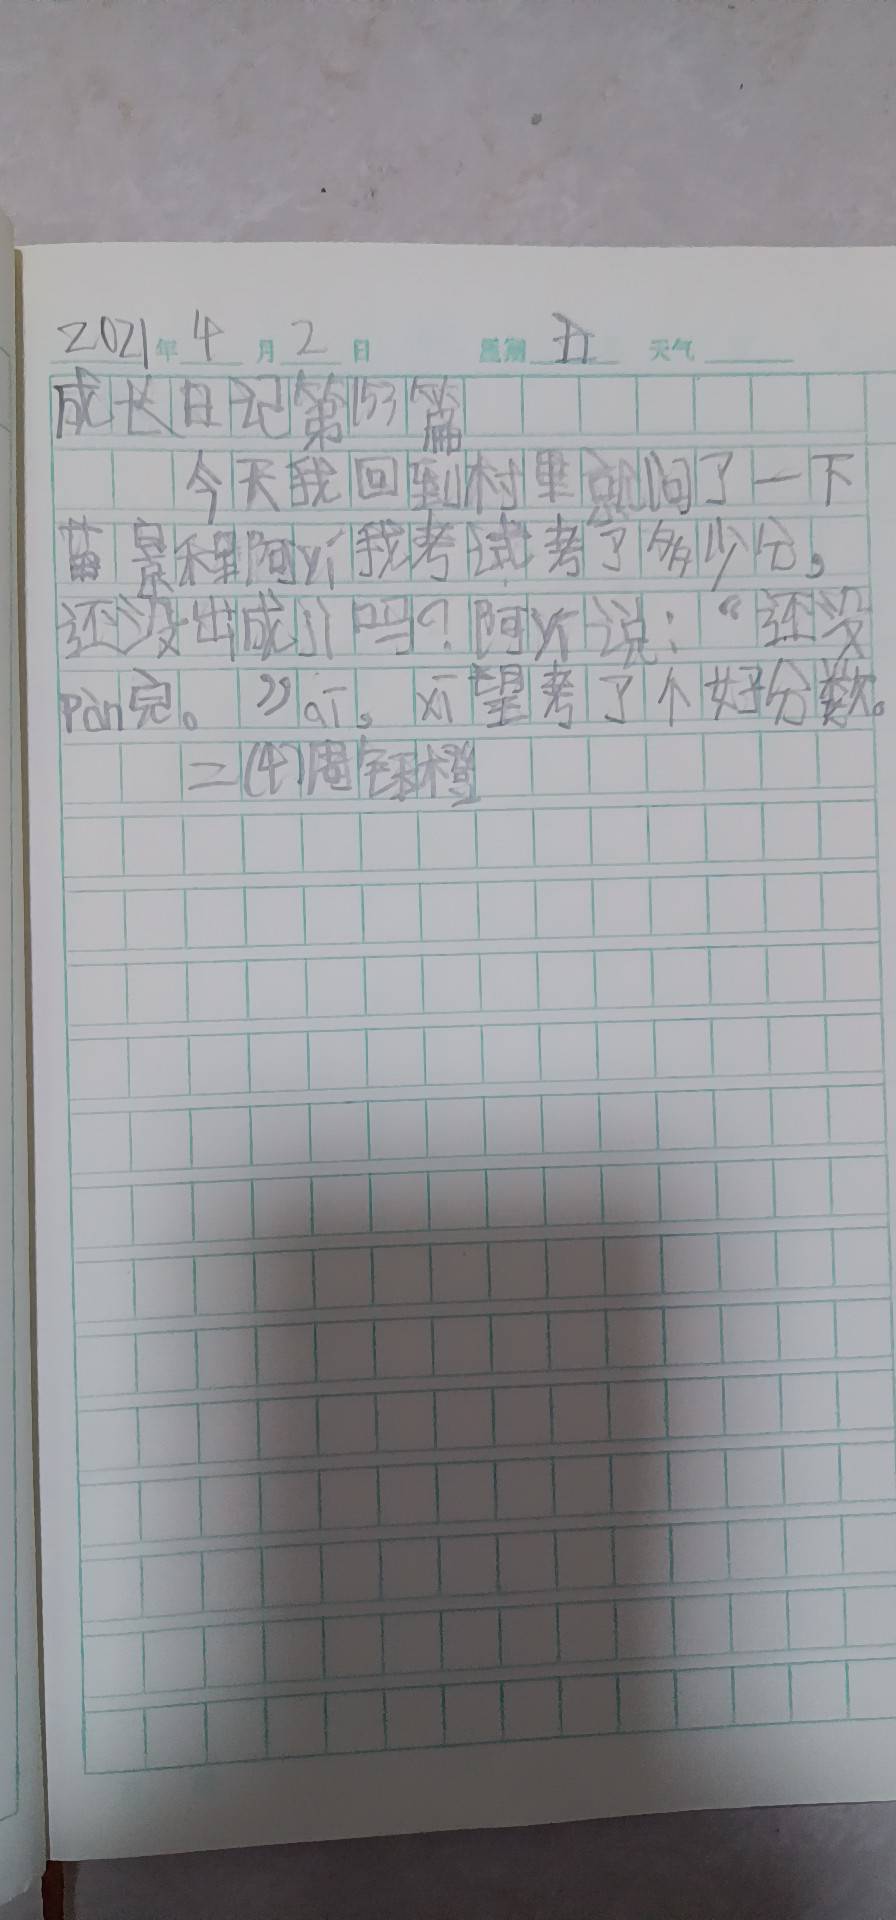 2021年4月2日 星期五 天气
成长日记第153篇
今天我回到村里就问了一下
苗景程阿yí我考试考了多少分。
还没出成jì吗?阿yí说:“还没
pàn完。”āī。xī望考了个好分数。
二(4)周钰橙